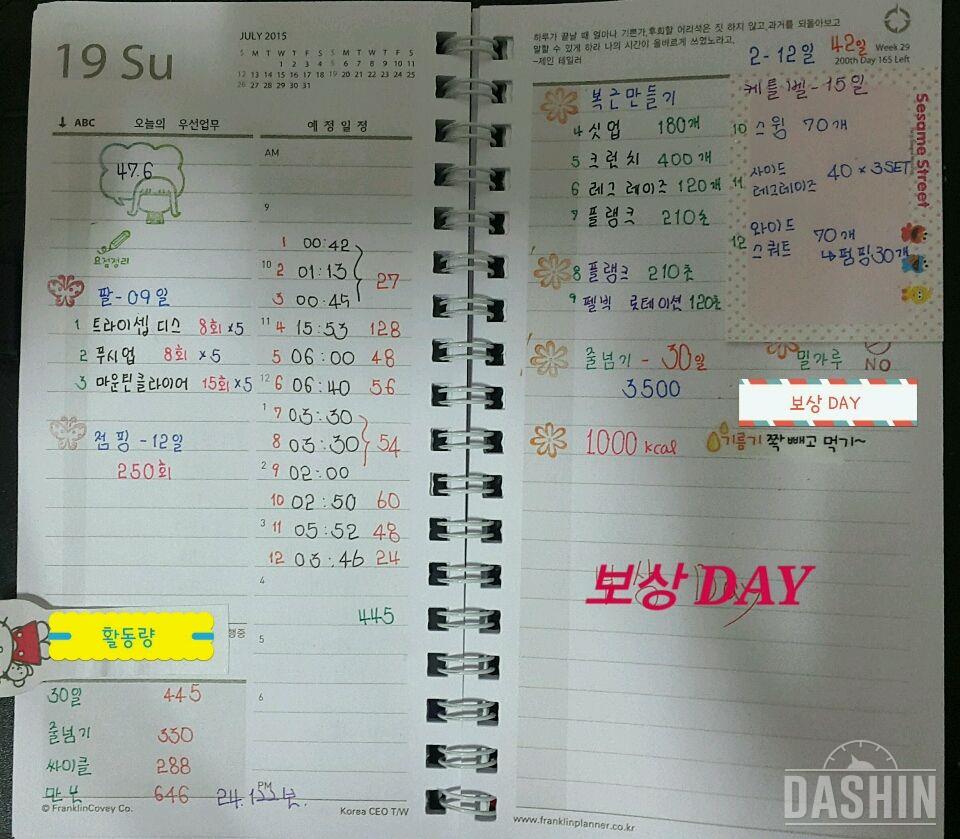 19 Su
JULY 2015
S M T W T F S S M T W T F S
1 2 3 4 5 6 7 8 9 10 11
12 13 14 15 16 17 18 19 20 21 22 23 24 25
26 27 28 29 30 31
↓ ABC 오늘의 우선업무
47.6
요점정리
팔-09일
1 트라이셉 디스 8회 ×5
2 푸시업 8회 ×5
3 마운틴클라이머 15회 ×5
점핑 -12일
250회
활동량
행중
30일 445
줄넘기 330
싸이클 288
만보 646 24.133보.
© FranklinCovey Co.
예정일정
AM
9
1 00:42
10 2 01:13 27
3 00:45
11 4 15:53 128
5 06:00 48
12 6 06:40 56
1 7 03:30
8 03:30 54
2 9 02:00
10 02:50 60
3 11 05:52 48
12 03:46 24
4
445
5
6
PM
Korea CEO T/W
하루가 끝날 때 얼마나 기쁜가,후회할 어리석은 짓 하지 않고,과거를 되돌아보고
말할 수 있게 하라 나의 시간이 올바르게 쓰였노라고.
-제인 테일러
2-12일 42일
Week 29
200th Day 165 Left
복근만들기
4 싯업 180개
5 크런치 400개
6 레그레이즈 120개
7 플랭크 210초
8 플랭크 210초
9 펠빅 롯테이션 120초
케틀벨-15일
10 스윙 70개
11 사이드
레그레이즈 40×3SET
12 와이드
스쿼트 70개
↳펌핑30개
Sesame Street
줄넘기 - 30일
3500
밀가루
NO
보상 DAY
1000 kcal
기름기 쫙 빼고 먹기~
보상 DAY
www.franklinplanner.co.kr
DASHIN